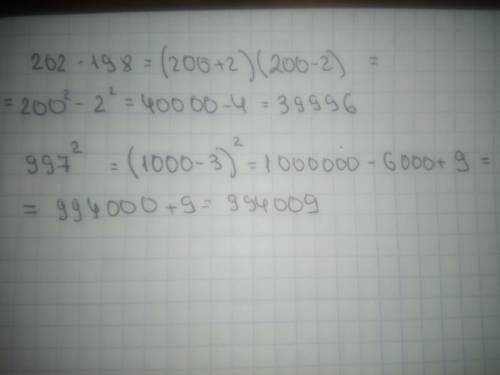 202 · 198 = (200+2)(200-2) =
= 200² - 2² = 40000 - 4 = 39996
997² = (1000-3)² = 1000000 - 6000 + 9 =
= 994000 + 9 = 994009